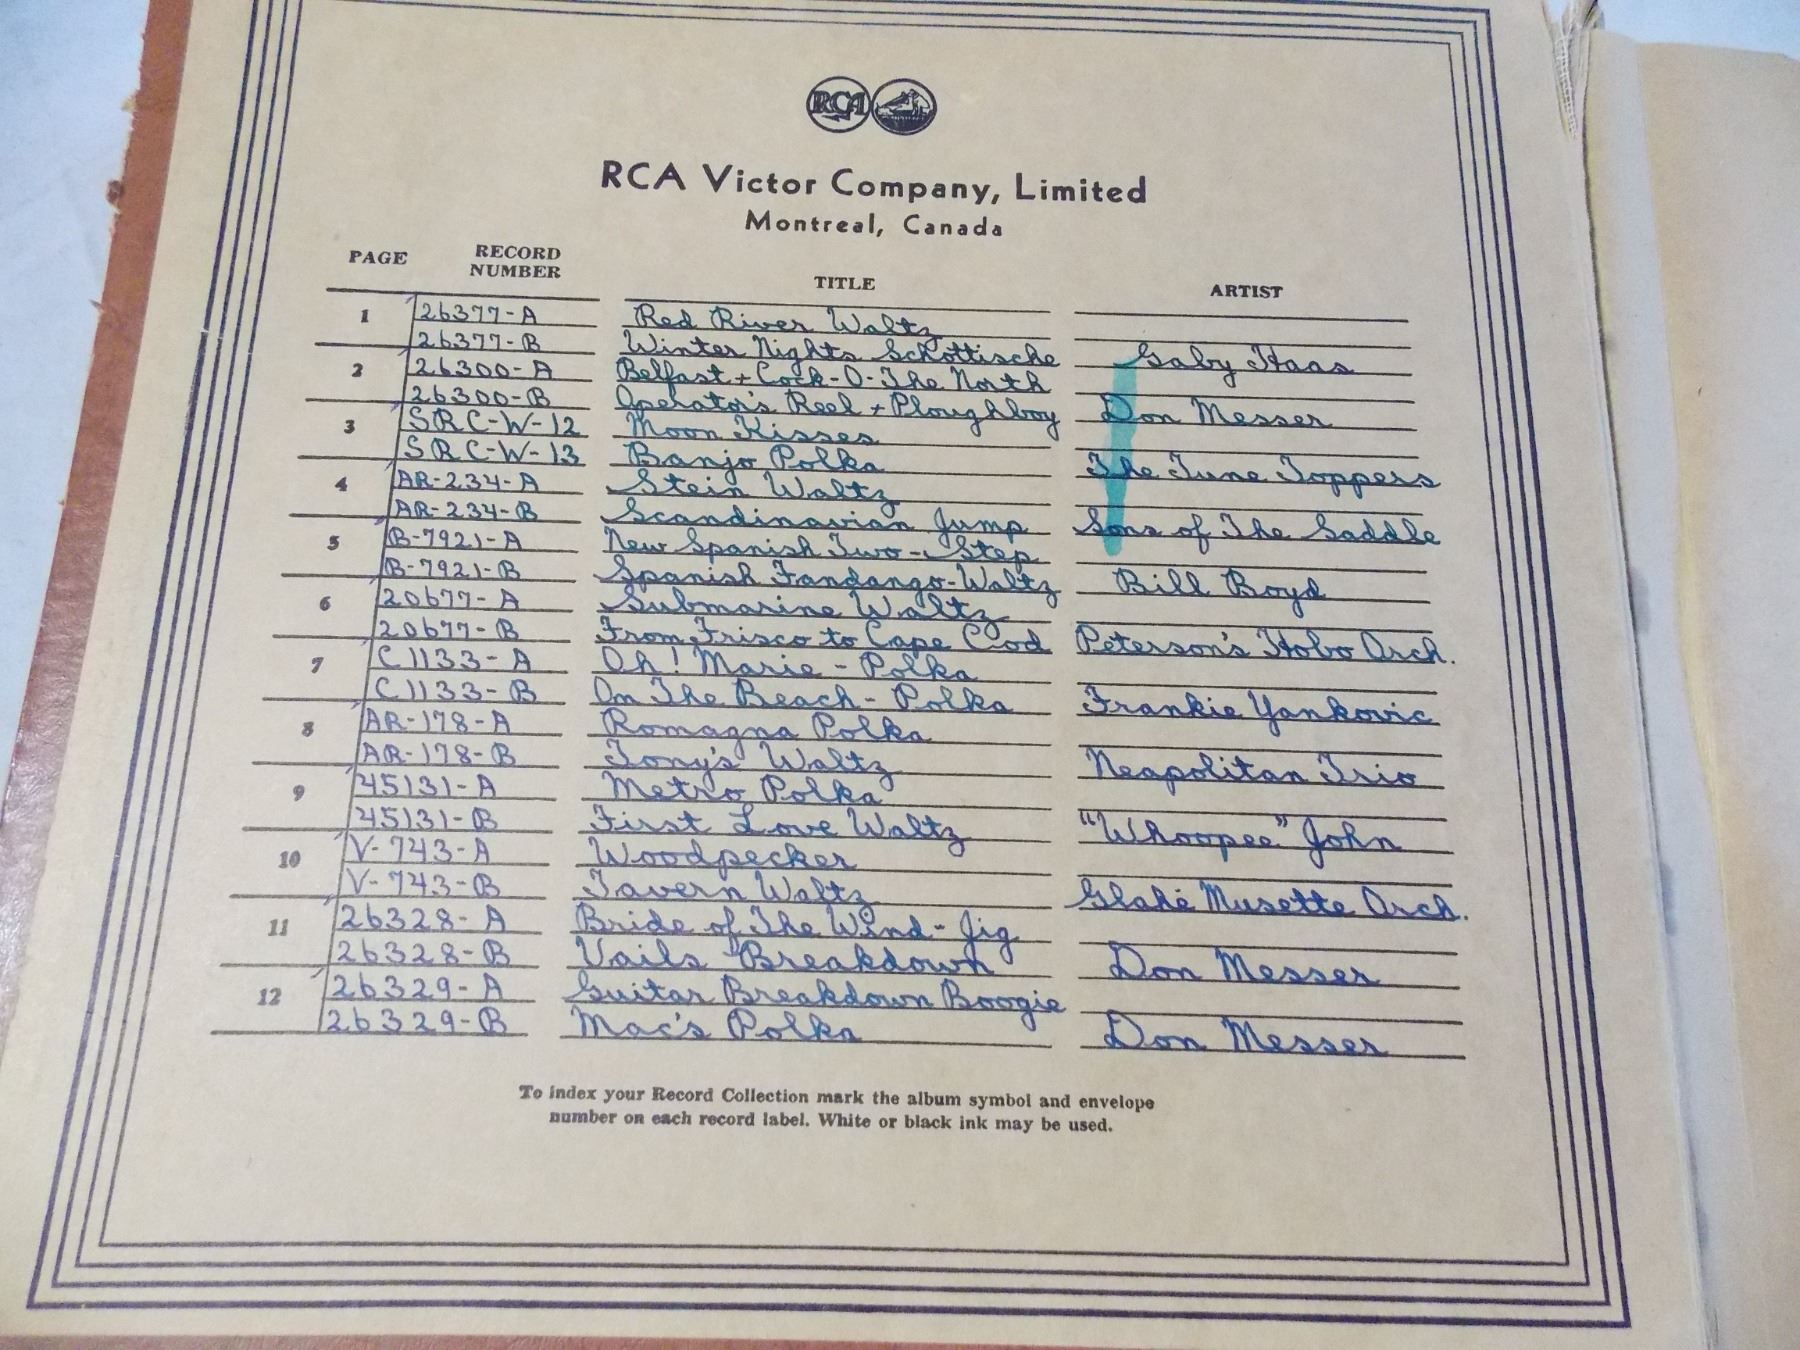 RCA
RCA Victor Company, Limited
Montreal, Canada
PAGE RECORD NUMBER TITLE ARTIST
1 26377-A Red River Waltz
26377-B Winter Nights Schottische Gaby Haas
2 26300-A Belfast + Cock-O-The North
26300-B Operator's Reel + Ploughboy Don Messer
3 SRC-W-12 Moon Kisses
SRC-W-13 Banjo Polka The Tune Toppers
4 AR-234-A Stein Waltz
AR-234-B Scandinavian Jump Sons of The Saddle
5 B-7921-A New Spanish Two-Step
B-7921-B Spanish Fandango-Waltz Bill Boyd
6 20677-A Submarine Waltz
20677-B From Frisco to Cape Cod Peterson's Hobo Orch.
7 C1133-A Oh! Marie - Polka
C1133-B On The Beach - Polka Frankie Yankovic
8 AR-178-A Romagna Polka
AR-178-B Tony's Waltz Neapolitan Trio
9 45131-A Metro Polka
45131-B First Love Waltz "Whoopee" John
10 V-743-A Woodpecker
V-743-B Tavern Waltz Glahé Musette Orch.
11 26328-A Bride of The Wind - Jig
26328-B Vails Breakdown Don Messer
12 26329-A Guitar Breakdown Boogie
26329-B Mac's Polka Don Messer
To index your Record Collection mark the album symbol and envelope
number on each record label. White or black ink may be used.